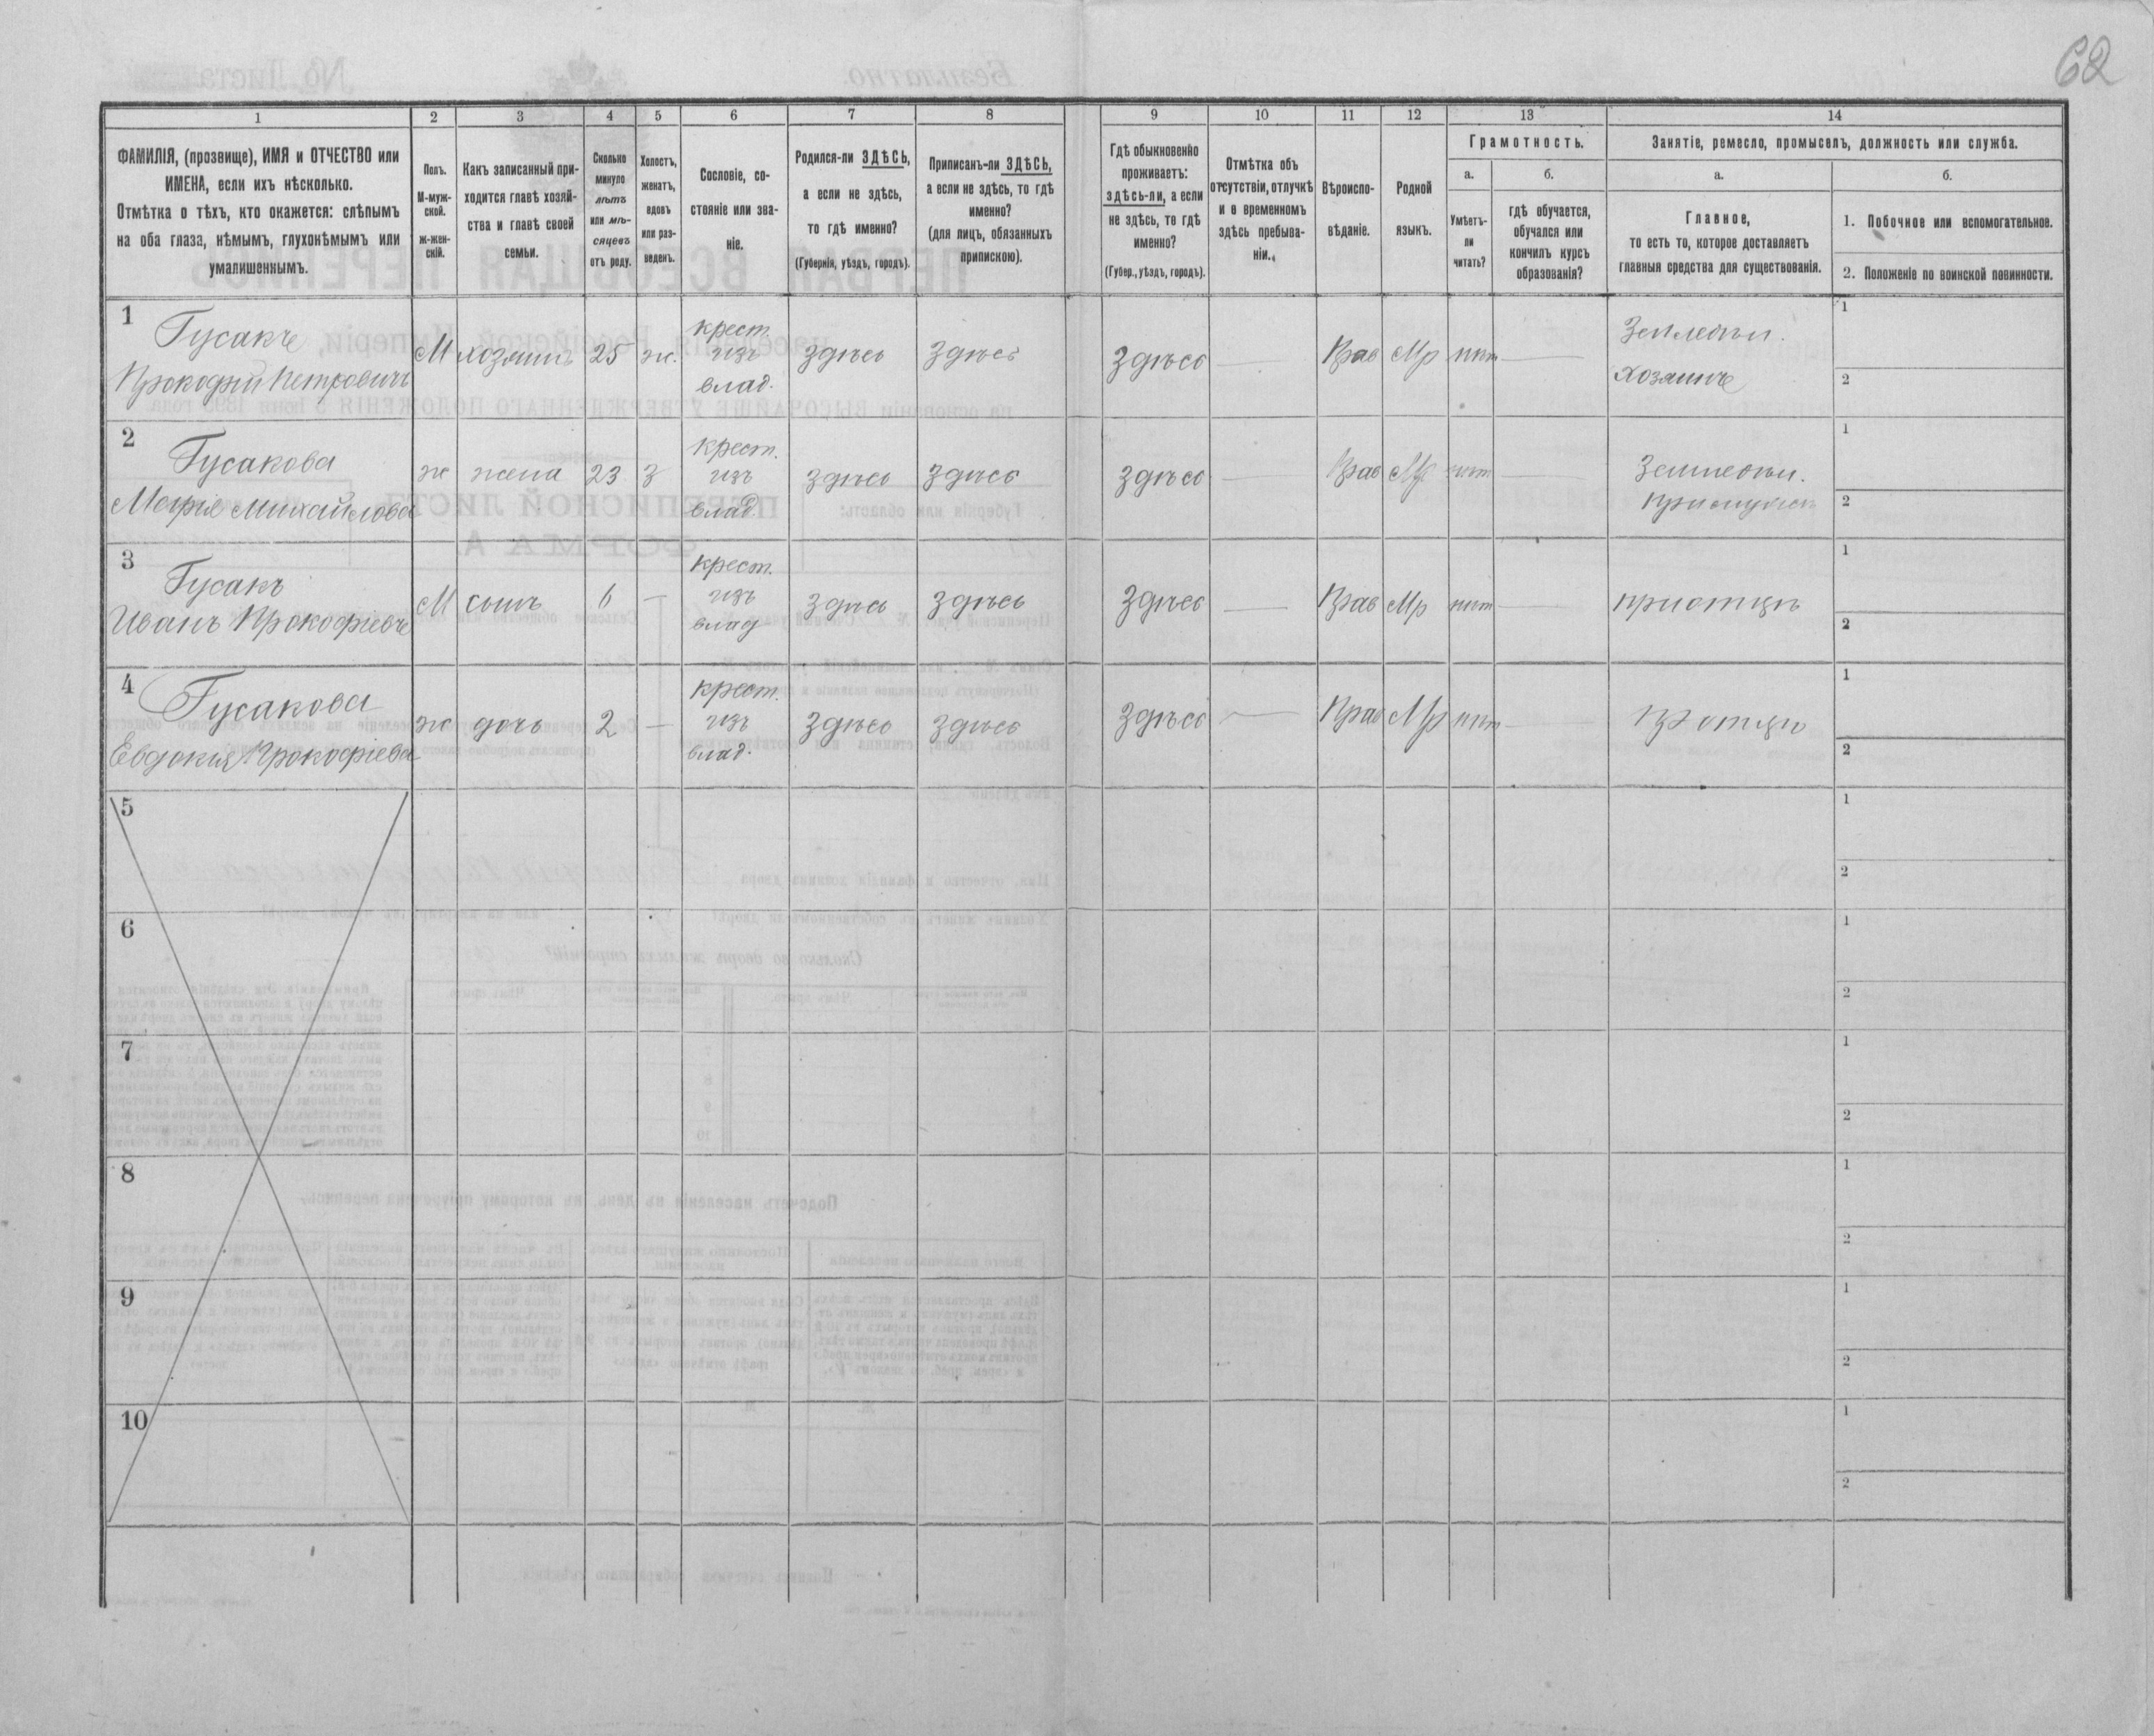 62
1 2 3 4 5 6 7 8 9 10 11 12 13 14
ФАМИЛІЯ, (прозвище), ИМЯ и ОТЧЕСТВО или
ИМЕНА, если ихъ нѣсколько.
Отмѣтка о тѣхъ, кто окажется: слѣпымъ
на оба глаза, нѣмымъ, глухонѣмымъ или
умалишеннымъ.
Полъ.
М-муж-
ской.
ж-жен-
скій.
Какъ записанный при-
ходится главѣ хозяй-
ства и главѣ своей
семьи.
Сколько
минуло
лѣтъ
или мѣ-
сяцевъ
отъ роду.
Холостъ,
женатъ,
вдовъ
или раз-
веденъ.
Сословіе, со-
стояніе или зва-
ніе.
Родился-ли ЗДѢСЬ,
а если не здѣсь,
то гдѣ именно?
(Губернія, уѣздъ, городъ).
Приписанъ-ли ЗДѢСЬ,
а если не здѣсь, то гдѣ
именно?
(для лицъ, обязанныхъ
припискою).
Гдѣ обыкновенно
проживаетъ:
здѣсь-ли, а если
не здѣсь, то гдѣ
именно?
(Губер., уѣздъ, городъ).
Отмѣтка объ
отсутствіи, отлучкѣ
и о временномъ
здѣсь пребыва-
ніи.
Вѣроиспо-
вѣданіе.
Родной
языкъ.
Грамотность.
а.
Умѣетъ-
ли
читать?
б.
гдѣ обучается,
обучался или
кончилъ курсъ
образованія?
Занятіе, ремесло, промыселъ, должность или служба.
а.
Главное,
то есть то, которое доставляетъ
главныя средства для существованія.
б.
1. Побочное или вспомогательное.
2. Положеніе по воинской повинности.
1
Гусакъ
Прокофій Петровичъ
М хозяинъ 25 ж.
крест.
изъ
влад.
здѣсь здѣсь здѣсь — Прав Мр нѣт —
Земледѣл.
Хозяинъ
1
2
2
Гусакова
Марія Михайлова
ж жена 23 з
крест.
изъ
влад.
здѣсь здѣсь здѣсь — Прав Мр нѣт —
Земледѣл.
1
2
3
Гусакъ
Иванъ Прокофіевъ
М сынъ 6 —
крест.
изъ
влад
здѣсь здѣсь здѣсь — Прав Мр нѣт —
при отцѣ
1
2
4
Гусакова
Евдокия Прокофіева
ж дочь 2 —
крест.
изъ
влад.
здѣсь здѣсь здѣсь — Прав Мр нѣт —
1
2
5
1
2
6
1
2
7
1
2
8
1
2
9
1
2
10
1
2